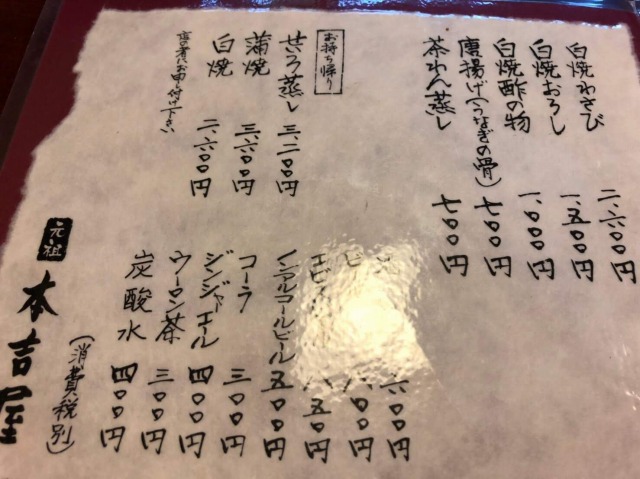 白焼わさび 二、六〇〇円
白焼おろし 一、五〇〇円
白焼酢の物 一、〇〇〇円
唐揚げ(うなぎの骨) 七〇〇円
茶わん蒸し 七〇〇円
お持ち帰り
せいろ蒸し 三、二〇〇円
蒲焼 三、六〇〇円
白焼 二、六〇〇円
店の者にお申し付け下さい
六〇〇円
ビ 八〇〇円
エビス 八五〇円
ノンアルコールビール 五〇〇円
コーラ 三〇〇円
ジンジャエール 四〇〇円
ウーロン茶 三〇〇円
炭酸水 四〇〇円
(消費税別)
元祖 本吉屋